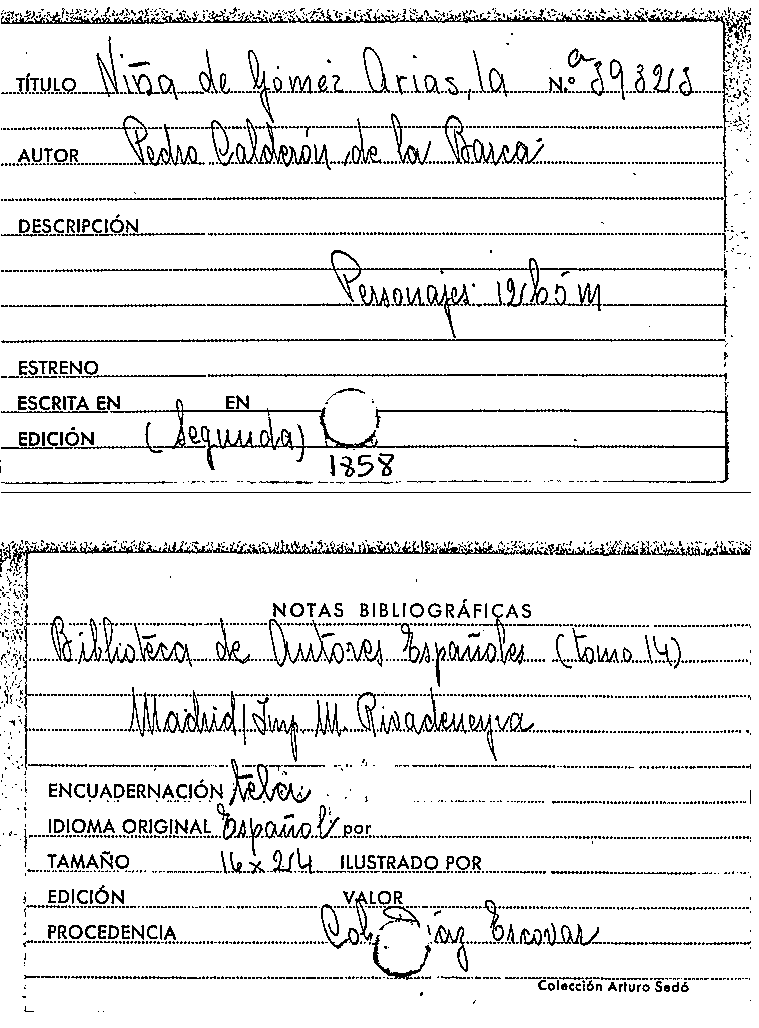 TÍTULO Niña de Gómez Arias, la N.º
AUTOR Pedro Calderón de la Barca
DESCRIPCIÓN
Personajes: 12 h 5 m
ESTRENO
ESCRITA EN EN
EDICIÓN (Segunda)
1858
NOTAS BIBLIOGRÁFICAS
Biblioteca de Autores Españoles (tomo 14)
Madrid/Imp. M. Rivadeneyra
ENCUADERNACIÓN tela
IDIOMA ORIGINAL Español por
TAMAÑO ILUSTRADO POR
EDICIÓN VALOR
PROCEDENCIA Col. Díaz Escovar
Colección Arturo Sedó